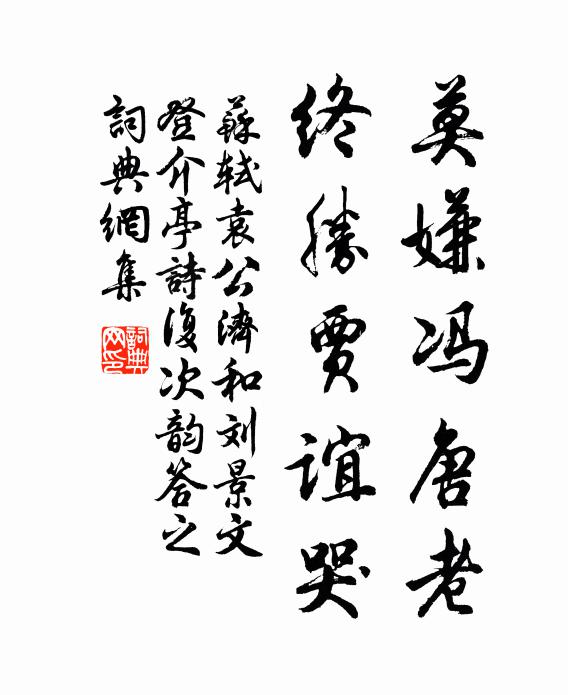 莫嫌冯唐老
终勝賈誼哭
蘇軾袁公濟和刘景文
登介亭詩復次韵答之
詞典網集
詞典网印